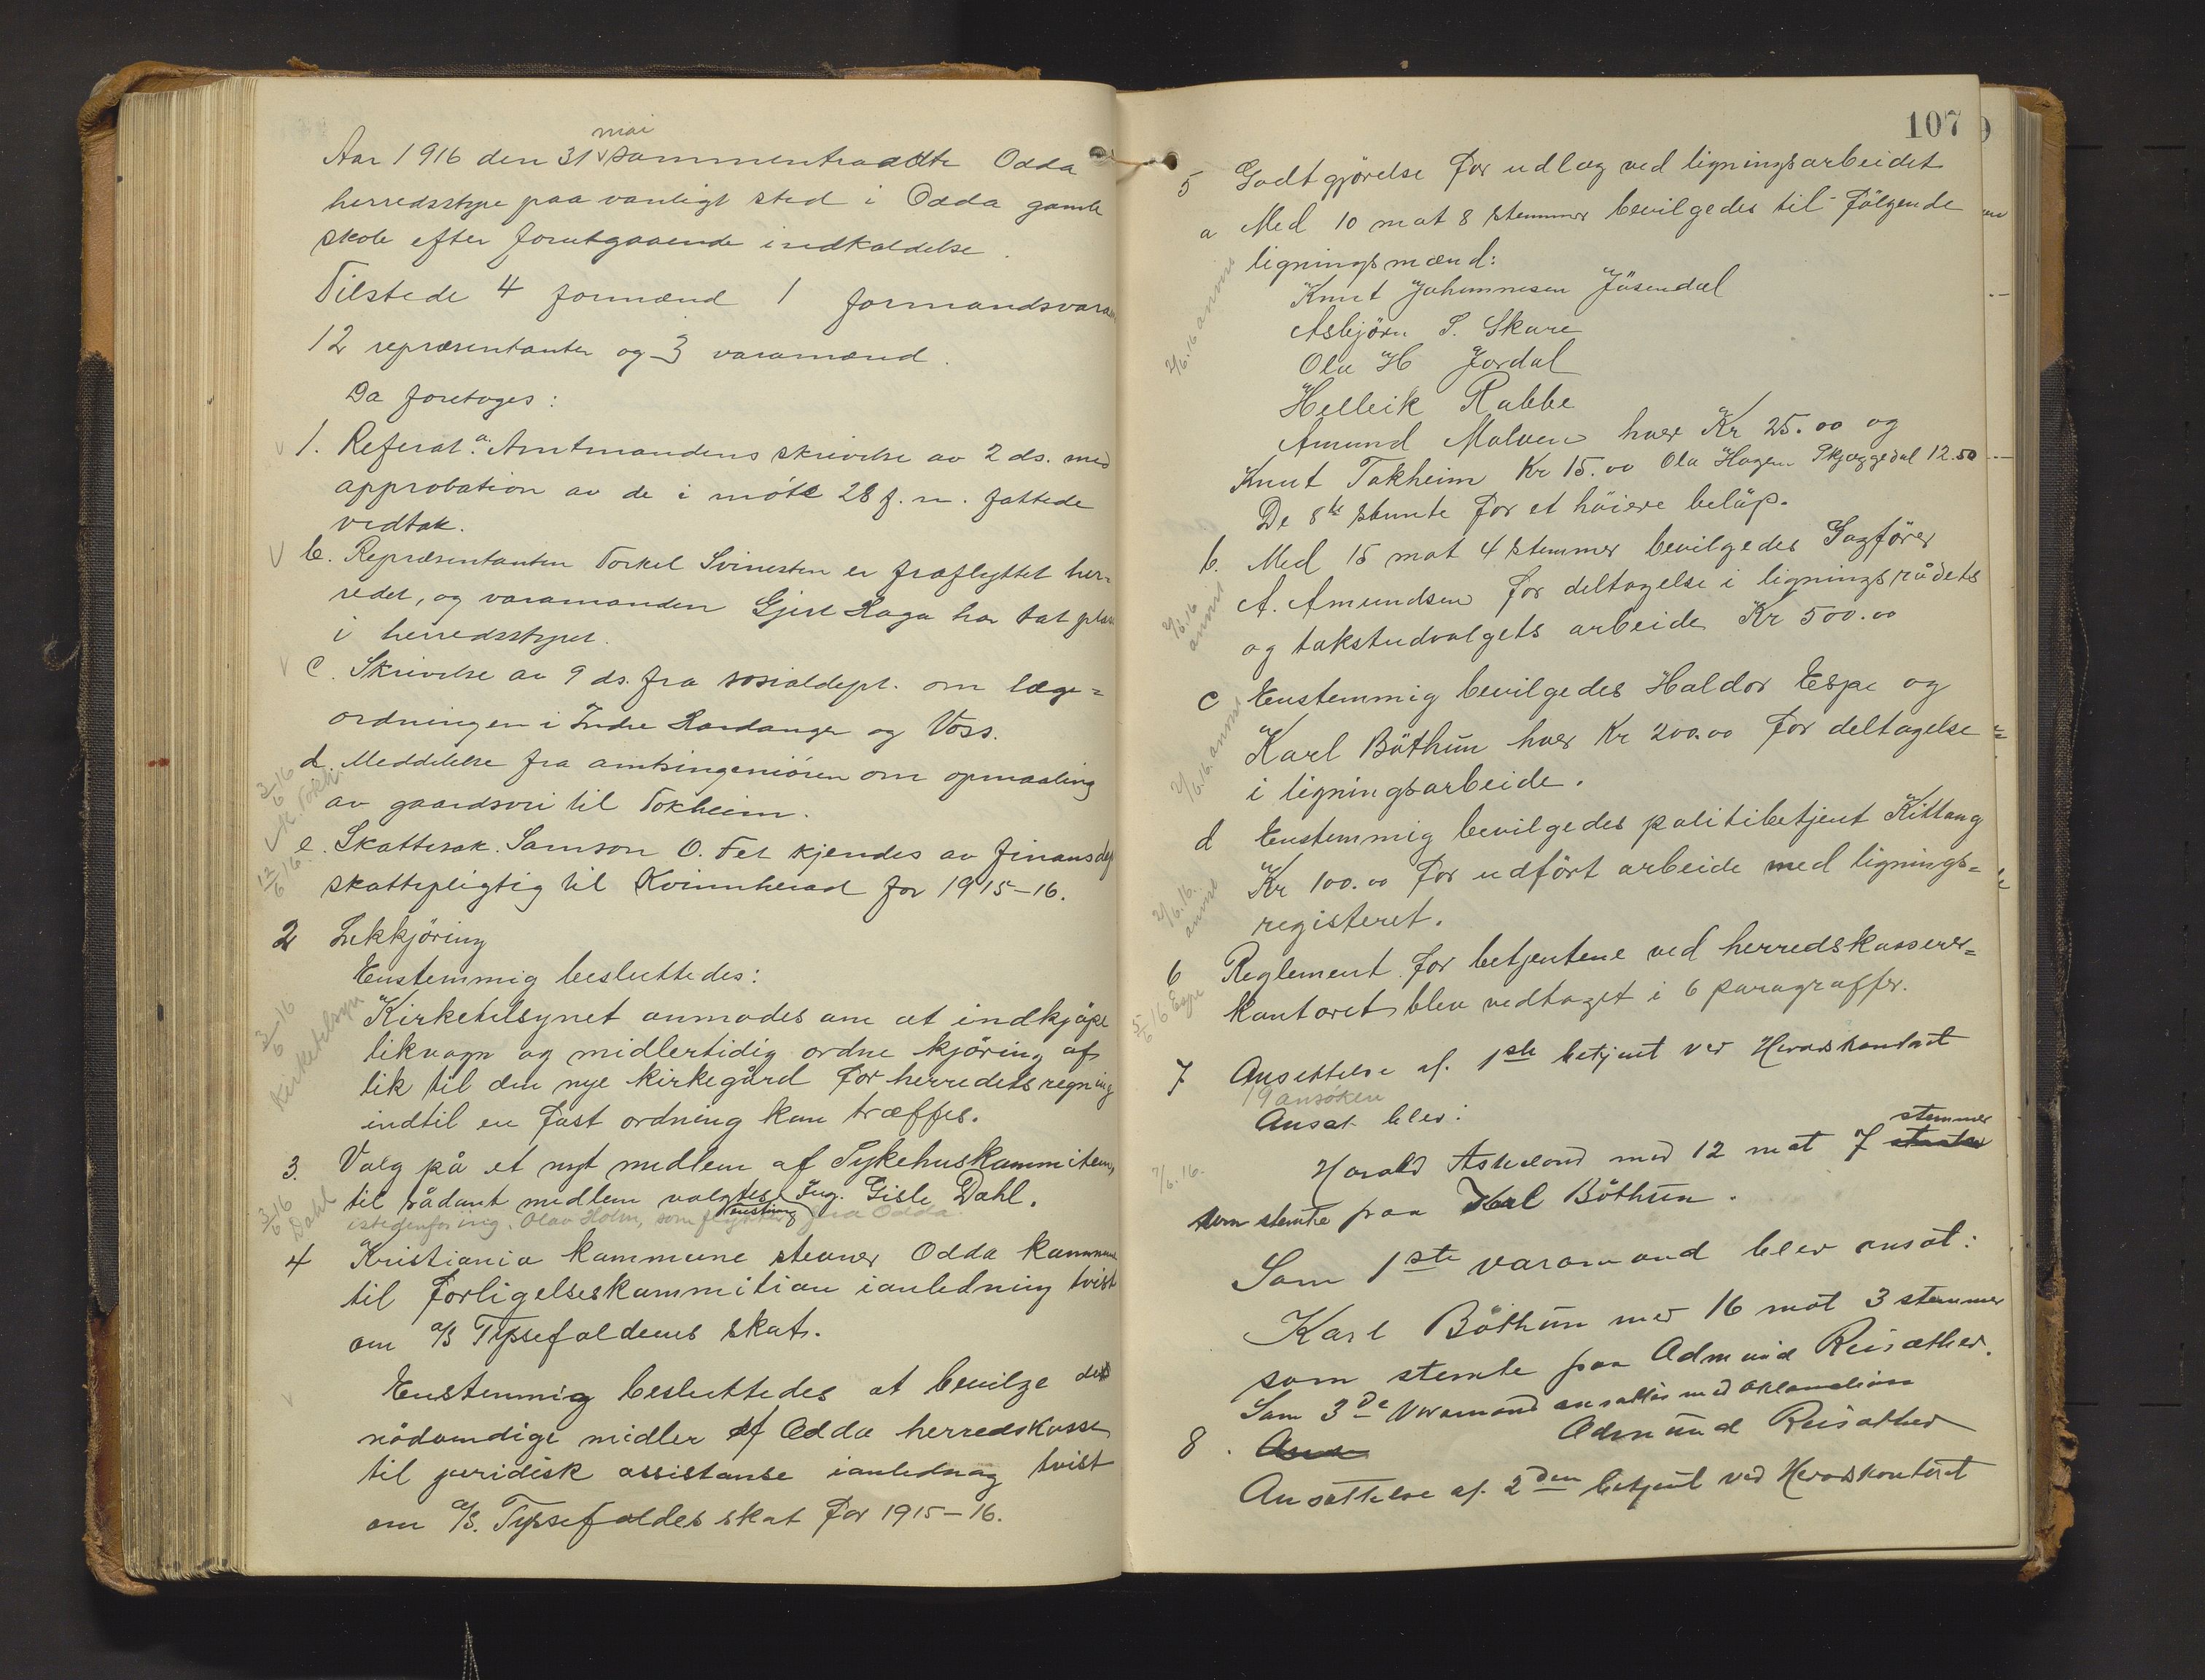 mai
Aar 1916 den 31 v sammentraadte Odda
herredsstyre paa vanligt sted i Odda gamle
skole efter forutgaaende indkaldelse.
Tilstede 4 formænd 1 formandsvara
12 repræsentanter og 3 varamænd.
Da foretoges:
v 1. Referat: a. Amtmandens skrivelse av 2 ds. med
approbation av de i möte 28 f. m. fattede
vedtak.
v b. Repræsentanten Torkel Svinesten er fraflyttet her-
redet, og varamanden Gjert Haga har tat plass
i herredsstyret.
v c. Skrivelse av 9 ds. fra sosialdept. om læge=
ordningen i Indre Hardanger og Voss.
3/6 16 K. Tokh.
d. Meddelelse fra amtsingeniören om opmaaling
av gaardsvei til Tokheim.
v 12/6 16.
e. Skattesak. Samson O. Fet kjendes av finansdep
skattepligtig til Kvinnherad for 1915-16.
2 Likkjöring
Enstemmig besluttedes:
3/6 16 Kirketilsyn
Kirketilsynet anmodes om at indkjöpe
likvogn og midlertidig ordne kjöring af
lik til den nye kirkegård for herredets regning
indtil en fast ordning kan træffes.
3. Valg på et nyt medlem af Sykehuskommiteen,
3/6 16 Dahl
til sådant medlem valgtes enstemmig Ing. Gisle Dahl.
istedenfor ing. Olav Holm, som flytter fra Odda.
4 Kristiania kommune stevner Odda kommune
til forligelseskommitian ianledning tvist
om a/s Tyssefaldenes skat.
v Enstemmig besluttedes at bevilge de
nödvendige midler af Odda herredskasse
til juridisk assistanse ianledning tvist
om a/s. Tyssefaldes skat for 1915-16.
107
5 Godtgjörelse for udlæg ved ligningsarbeidet
a Med 10 mot 8 stemmer bevilgedes til fölgende
ligningsmænd:
2/6.16 anvist
Knut Johannesen Jösendal
Asbjörn S. Skare
Ola H Jordal
Helleik Rabbe
Amund Malven hver Kr 25.00 og
Knut Tokheim Kr 15.00 Ola Hagen Skjæggedal 12.50
De 8te stemte for et höiere belöp.
b. Med 15 mot 4 stemmer bevilgedes Sagförer
2/6.16 anvist
A. Amundsen for deltagelse i ligningsrådets
og takstudvalgets arbeide Kr 500.00
c Enstemmig bevilgedes Haldor Espe og
2/6.16. anvist
Karl Böthun hver Kr 200.00 for deltagelse
i ligningsarbeide.
d Enstemmig bevilgedes politibetjent Kittang
2/6.16. anvist
Kr 100.00 for udfört arbeide med lignings=
registeret.
6 Reglement for betjentene ved herredskasserer=
5/6 16 Espe
kontoret blev vedtaget i 6 paragraffer.
7 Ansættelse af. 1ste betjent ved Herredskontoret
19 ansöken
Ansat blev:
stemmer
7/6.16.
Harald Askeland med 12 mot 7
som stemte paa Karl Böthun.
Som 1ste varamand blev ansat:
Karl Böthun med 16 mot 3 stemmer
som stemte paa Admund Reisæther.
Som 3de Varamand ansattes med Aklamation
8. Admund Reisæther
Ansættelse af. 2den betjent ved Herredskontoret